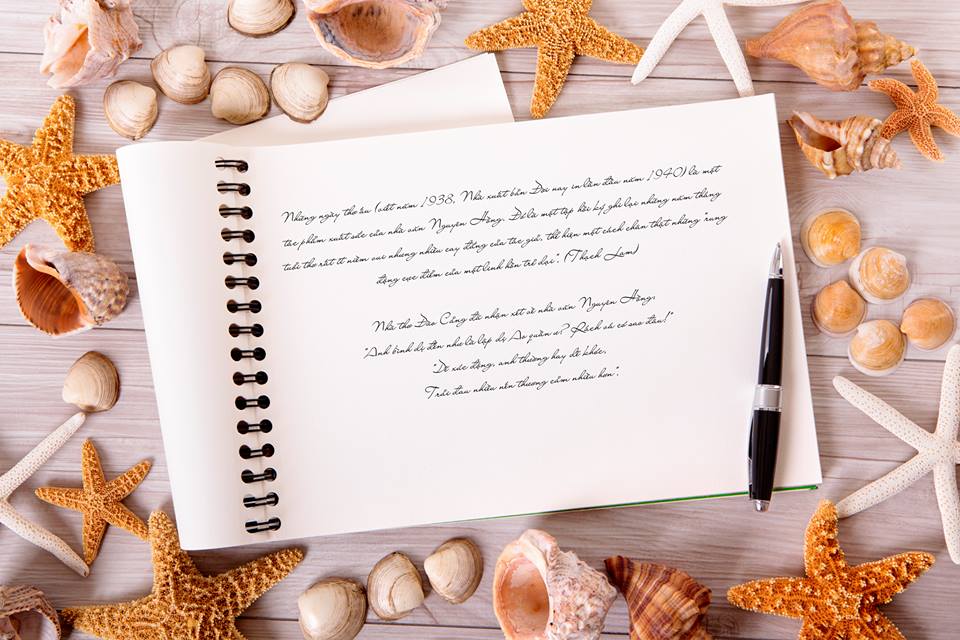 Những ngày thơ ấu (viết năm 1938, Nhà xuất bản Đời nay in lần đầu năm 1940) là một
tác phẩm xuất sắc của nhà văn Nguyên Hồng. Đó là một tập hồi ký ghi lại những năm tháng
tuổi thơ rất ít niềm vui nhưng nhiều cay đắng của tác giả, thể hiện một cách chân thật những "rung
động cực điểm của một linh hồn trẻ dại". (Thạch Lam)
Nhà thơ Đào Cảng đã nhận xét về nhà văn Nguyên Hồng,
"Anh bình dị đến như là lập dị Áo quần ư? Rách vá có sao đâu!"
"Dễ xúc động, anh thường hay dễ khóc,
Trải đau nhiều nên thương cảm nhiều hơn".